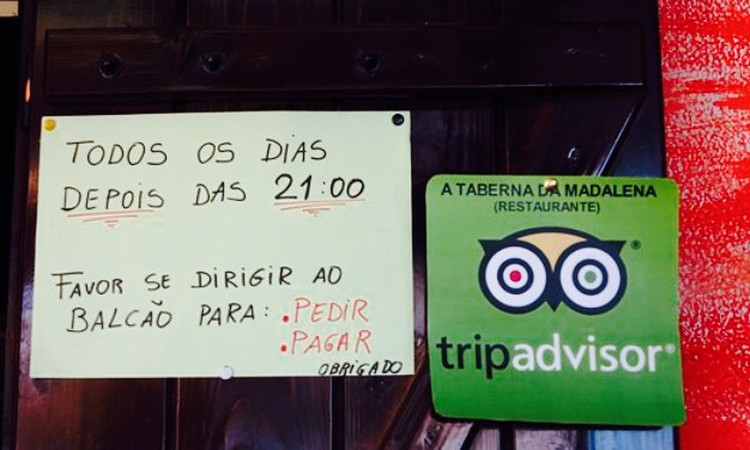 TODOS OS DIAS
DEPOIS DAS 21:00
FAVOR SE DIRIGIR AO
BALCÃO PARA: .PEDIR
.PAGAR
OBRIGADO
A TABERNA DA MADALENA
(RESTAURANTE)
tripadvisor®